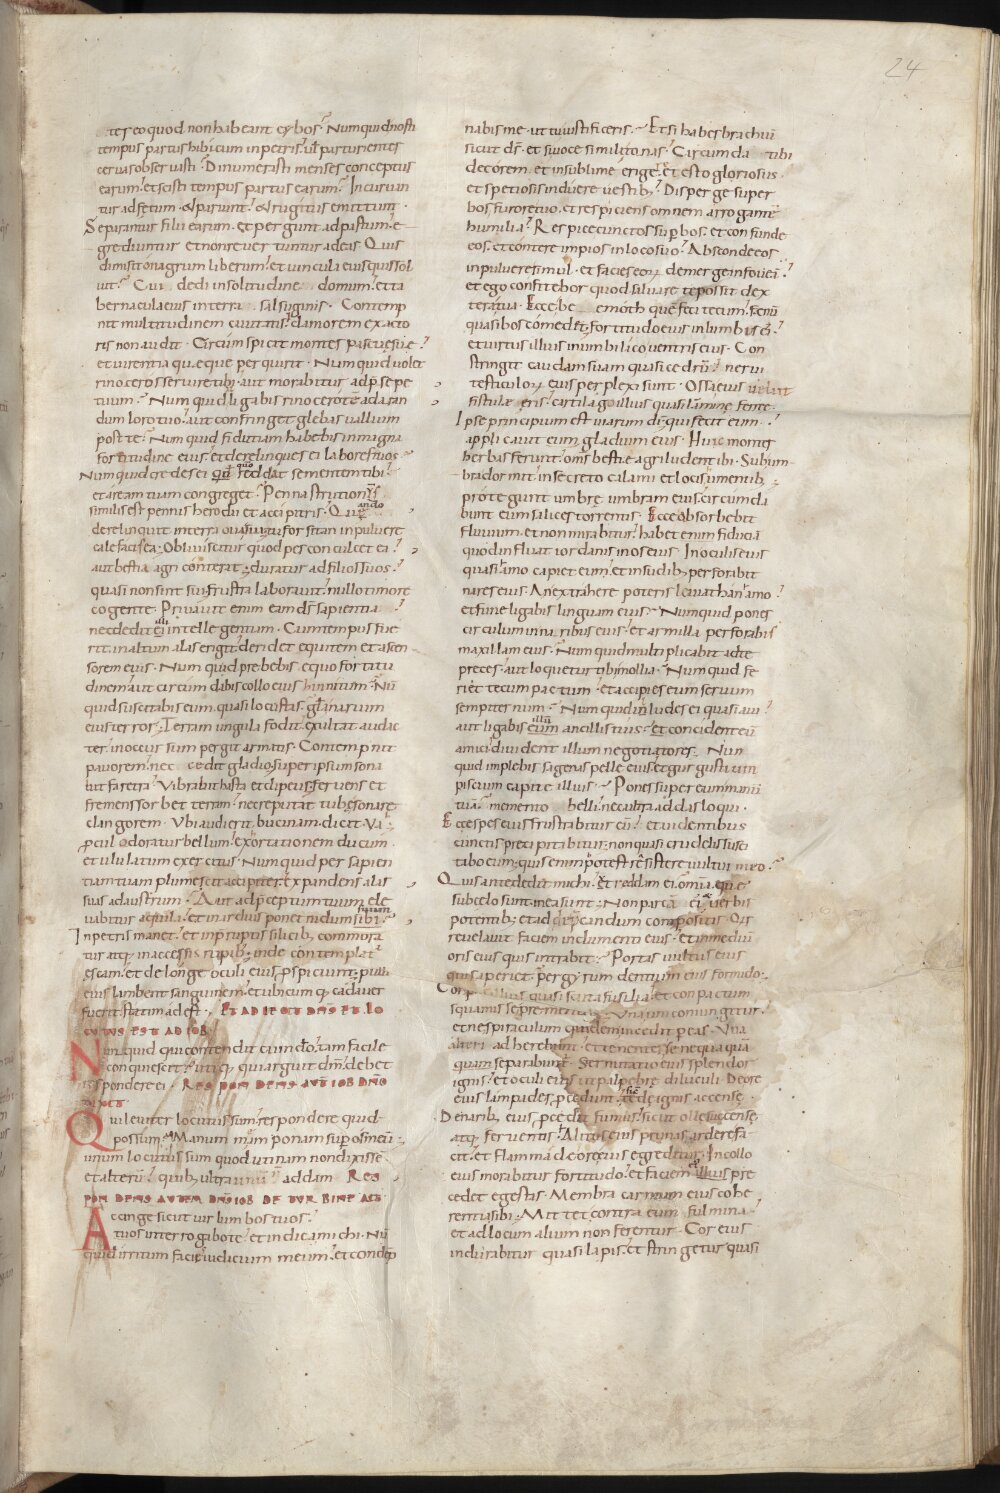 24
tes eo quod non habeant cybos Numquid nosti
tempus partus hibicum in petris ul parturientes
cervas observasti Dinumerasti menses conceptus
earum et scisti tempus partus earum Incurvan
tur ad fetum et pariunt et rugitus emittunt
Separantur filii earum et pergunt ad pastum e
grediuntur et non revertuntur ad eas Quis
dimisit onagrum liberum et vincula eius quis sol
vit Cui dedi in solitudine domum et ta
bernacula eius in terra salsuginis Contemp
nit multitudinem civitatis clamorem exacto
ris non audit Circumspicit montes pascuę suę
et virentia quęque perquirit Numquid volet
rinoceros servire tibi aut morabitur ad pręsepe
tuum Numquid ligabis rinocerota ad aran
dum loro tuo aut confringet glebas vallium
post te Numquid fidutiam habebis in magna
fortitudine eius et derelinques ei labores tuos
Numquid credes ei quod reddat sementem tibi
et aream tuam congreget Penna strutionis
similis est pennis herodii et accipitris Quando
derelinquit in terra ova sua tu forsitan in pulvere
calefacis ea Obliviscitur quod pes conculcet ea
aut bestia agri conterat duratur ad filios suos
quasi non sint sui frustra laboravit nullo timore
cogente Privavit enim eam ds sapientia
nec dedit illi intellegentiam Cum tempus fue
rit in altum alas erigit deridet equitem et ascen
sorem eius Numquid prebebis equo fortitu
dinem aut circumdabis collo eius hinnitum Nu
quid suscitabis eum quasi locustas gloria narium
eius terror Terram ungula fodit exultat audac
ter in occursum pergit armatis Contempnit
pavorem nec cedit gladio Super ipsum sona
bit faretra Vibrabit hasta et clipeus fervens et
fremens sorbet terram nec reputat tubę sonare
clangorem Ubi audierit bucinam dicit va
procul odoratur bellum exortationem ducum
et ululatum exercitus Numquid per sapien
tiam tuam plumescit accipiter expandens alas
suas ad austrum Aut ad pręceptum tuum ele
vabitur aquila et in arduis ponet nidum
In petris manet et in pręruptis silicib; commora
tur atq; inaccessis rupib; inde contemplat
escam et de longe oculi eius prospiciunt pulli
eius lambent sanguinem et ubicumq; cadaver
fuerit statim adest ET ADIECIT DNS ET LO
CUTUS EST AD IOB
Numquid qui contendit cum do tam facile
conquiescit utiq; qui arguit dm debet
respondere ei RESPONDENS AUT IOB DNO
DIXIT
Qui leviter locutus sum respondere quid
possum Manum mam ponam super os meu
unum locutus sum quod utinam non dixisse
et alteru quib; ultra addam RES
PONDENS AUTEM DNS IOB DE TURBINE AIT
Accinge sicut vir lumbos tuos
tuos interrogabo te et indica michi Nu
quid irritum facies iudicium meum et condep
nabis me ut tu iustificeris Et si habes brachiu
sicut ds et si voce simili tonas Circumda tibi
decorem et in sublime erigere et esto gloriosus
et spetiosis induere vestib; Disperge super
bos furore tuo et respiciens omnem arrogante
humilia Respice cunctos supbos et confunde
eos et contere impios in loco suo Absconde eos
in pulvere simul et facies eorum demerge in fovea
et ego confitebor quod salvare te possit dex
tera tua Ecce be emoth que feci tecum fenu
quasi bos comedet fortitudo eius in lumbis ei
et virtus illius in umbilico ventris eius Con
stringit caudam suam quasi cedru nervi
testiculorum eius perplexi sunt Ossa eius velut
fistulę eris cartilago illius quasi laminę ferre
Ipse principium est viarum di qui fecit eum
applicavit eum gladium eius Huic montes
herbas ferunt oms bestię agri ludent ibi Sub um
bra dormit in secreto calami et locis umentib;
protegunt umbrę umbram eius circumda
bunt eum salices torrentis Ecce absorbebit
fluvium et non mirabitur habet enim fiducia
quod influat iordanis in os eius In oculis eius
quasi amo capiet eum et in sudib; perforabit
nares eius An extrahere poteris leviathan amo
et fune ligabis linguam eius Numquid pones
circulum in naribus eius et armilla perforabis
maxillam eius Numquid multiplicabit ad te
preces aut loquetur tibi mollia Numquid fe
riet tecum pactum et accipies eum servum
sempiternum Numquid inludes ei quasi avi
aut ligabis eum ancillis tuis et concident eu
amici divident illum negotiatores Num
quid implebis sagenas pelle eius et gurgustium
piscium capite illius Pones super eum manu
tua memento belli nec ultra addas loqui
Ecce spes eius frustrabitur eu et videntibus
cunctis precipitabitur non quasi crudelis susci
tabo eum quis enim potest resistere vultui meo
Quis ante dedit michi et reddam ei omnia que
sub celo sunt mea sunt Non parca ei verbis
potentib; et ad deprecandum compositis Quis
revelavit faciem indumenti eius et in mediu
oris eius quis intrabit Portas vultus eius
quis aperiet per gyrum dentium eius formido
Corp illius quasi scuta fusilia et conpactum
squamis se prementib; Una uni coniungitur
et ne spiraculum quidem incedit per eas Una
alteri adherebunt et tenentes se nequaqua
quam separabunt Sternutatio eius splendor
ignis et oculi eius ut palpebrę diluculi De ore
eius lampades procedunt sicut tedę ignis accensę
De narib; eius procedit fumus sicut ollę succense
atq; ferventis Alitus eius prunas ardere fa
cit et flamma de ore eius egreditur In collo
eius morabitur fortitudo et faciem illius pre
cedet egestas Membra carnium eius cohe
rentia sibi Mittet contra eum fulmina
et ad locum alium non ferentur Cor eius
indurabitur quasi lapis et stringetur quasi